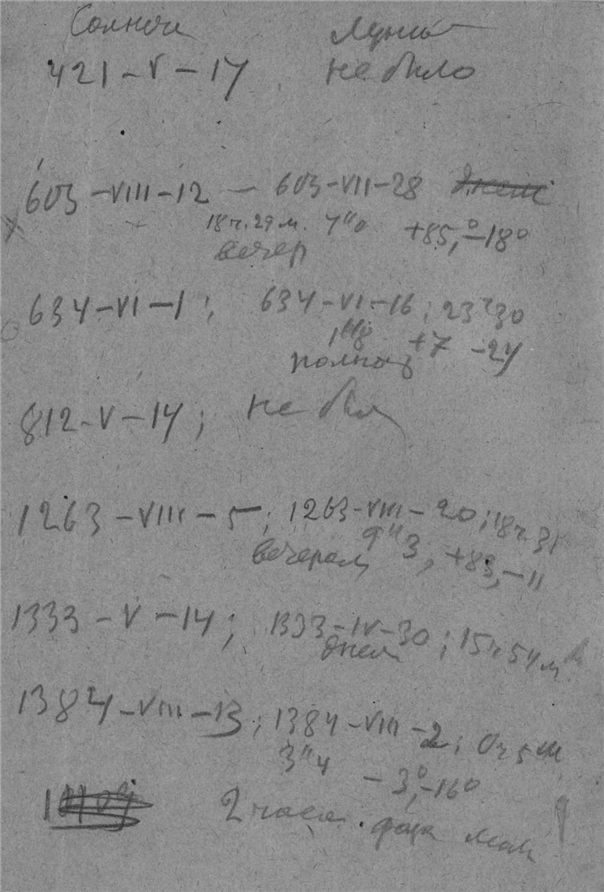 Солнце Луны
421-V-17 не было
603-VIII-12 — 603-VII-28 днем
18ч.29м. 7"0 +85,°-18°
вечер
634-VI-1; 634-VI-16; 23ч30
1"8 +7 -24
812-V-14; не был
1263-VIII-5; 1263-VIII-20; 18ч.31
вечером 9"3, +83,-11
1333-V-14; 1333-IV-30; 15ч54м
днем
1384-VIII-13; 1384-VIII-2; 0ч5м
3"4 -3,°-16°
2 часа. фаза